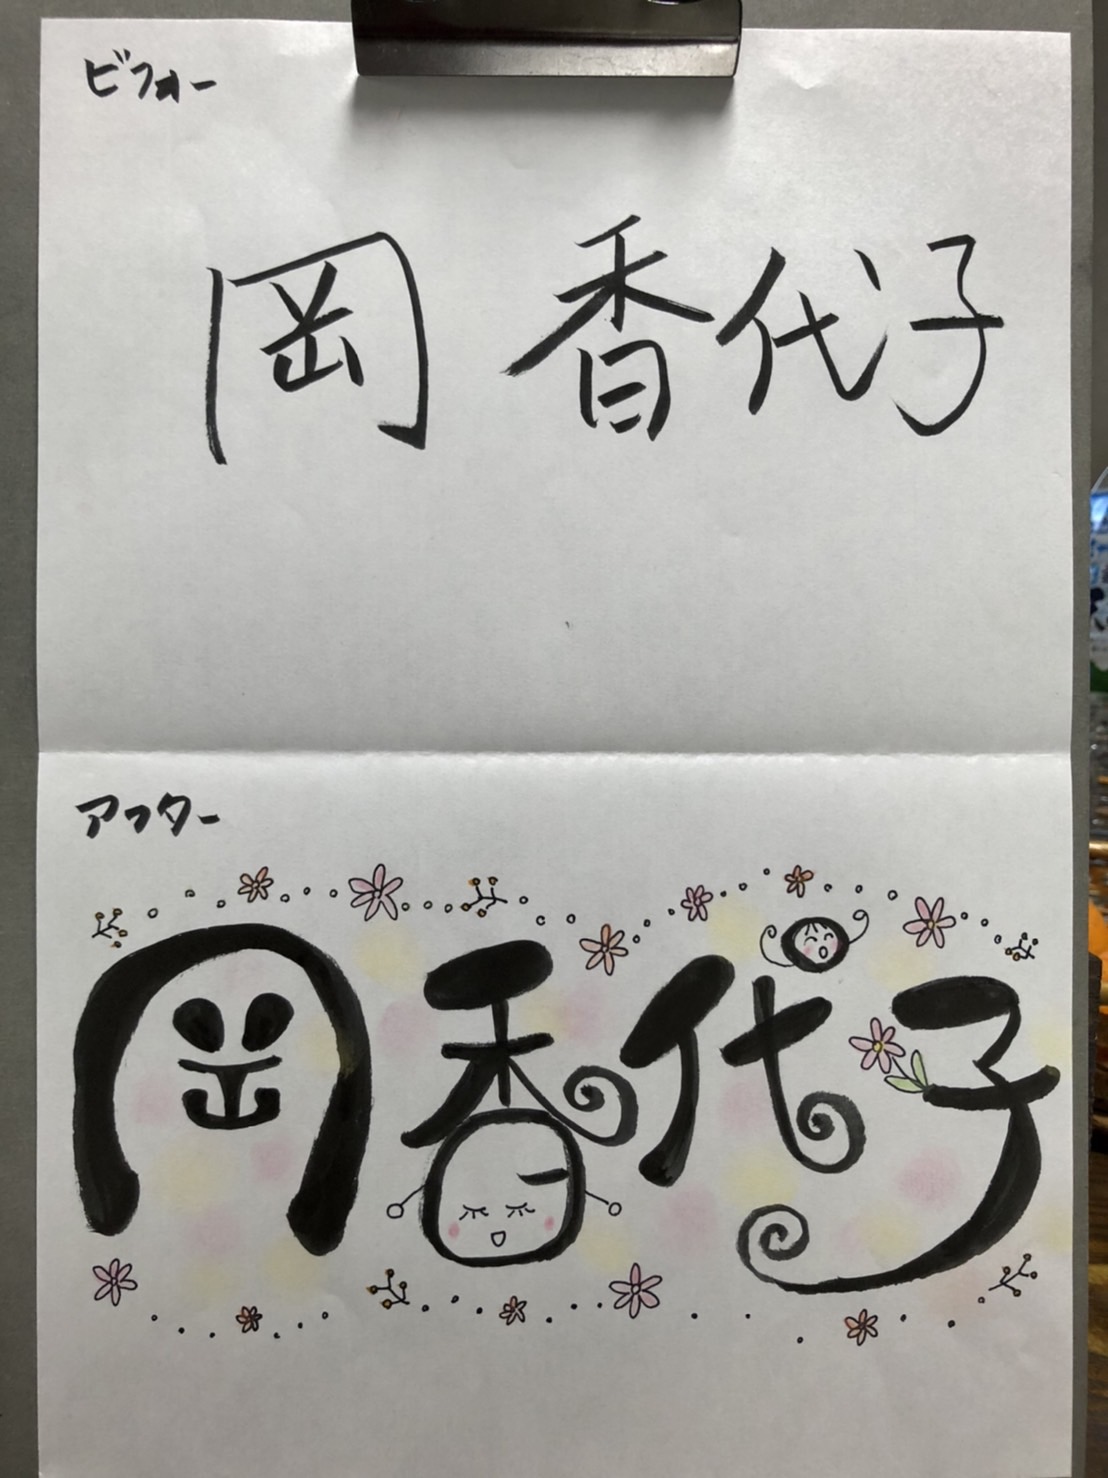 ビフォー
岡 香代子
アフター
岡香代子